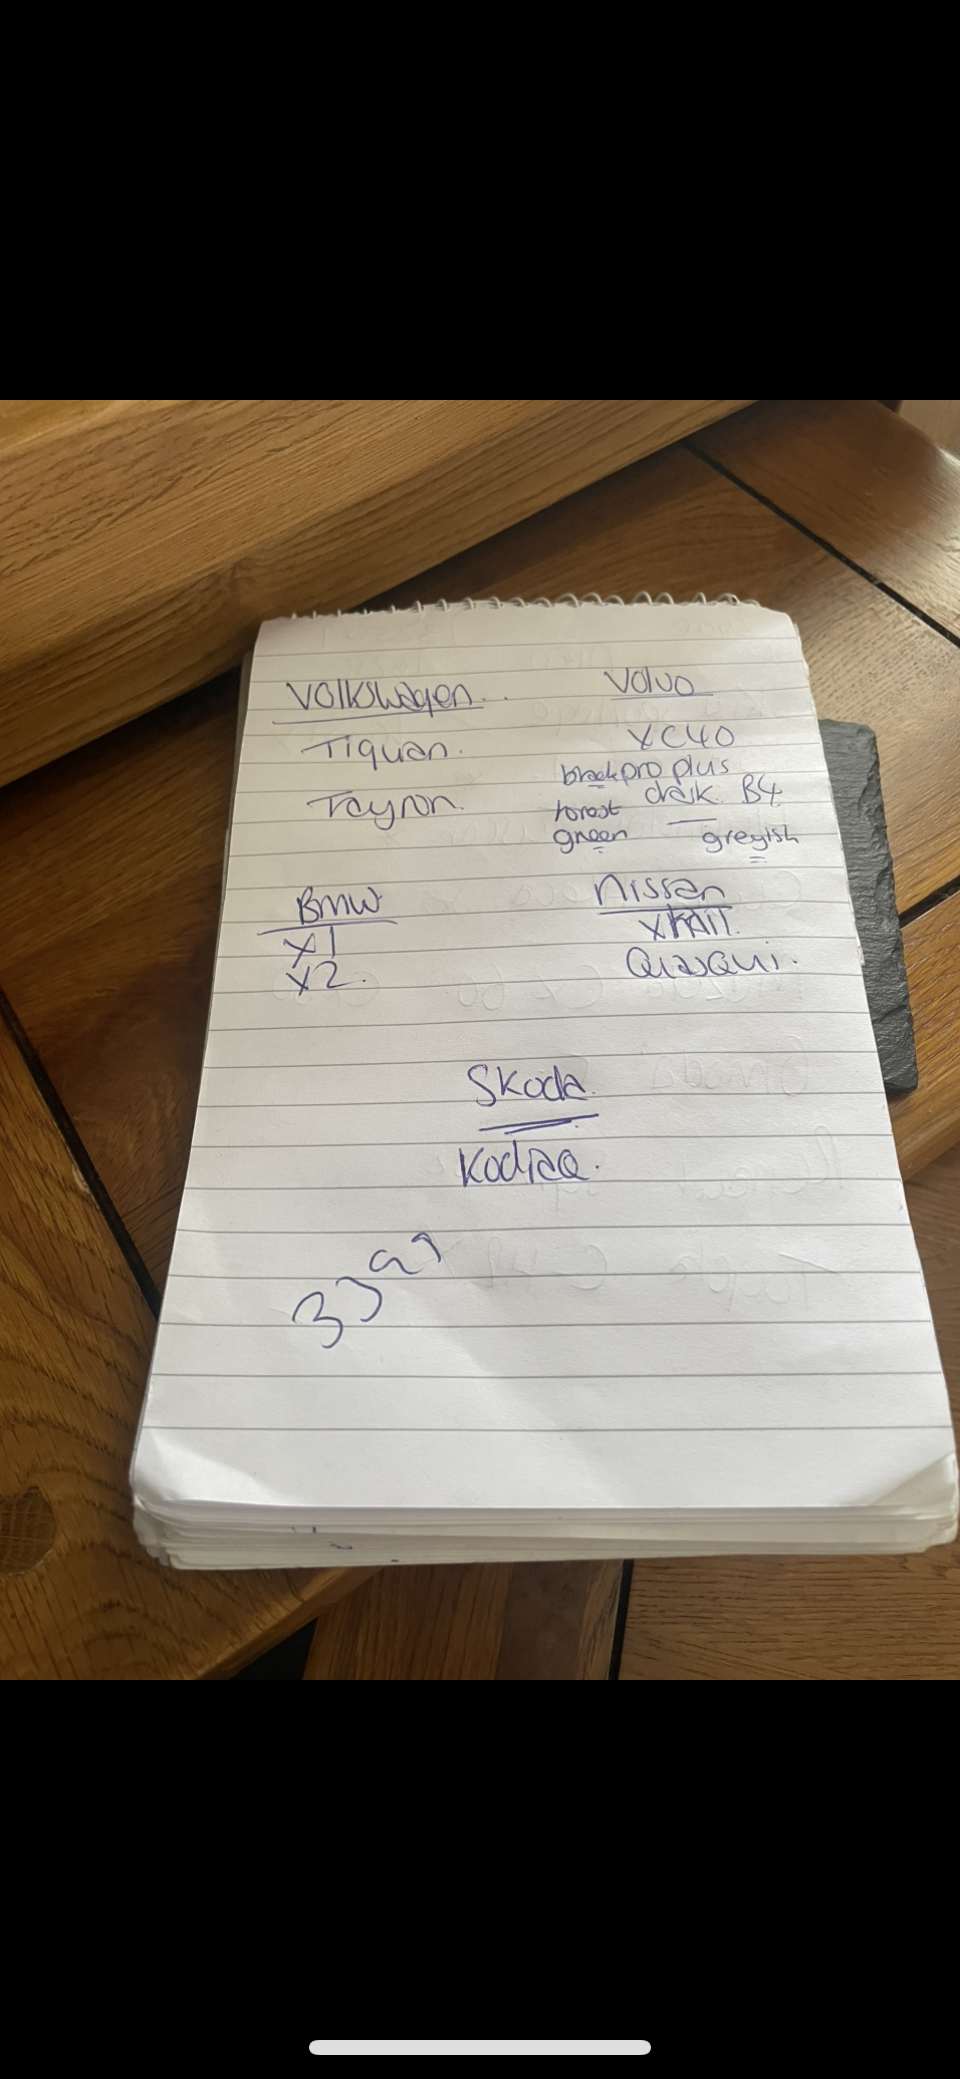 Volkswagen..
Tiquan.
Tayron.
Volvo
XC40
black pro plus
forest dark. B4
green greyish
BMW
X1
X2.
Nissan
Xtrail.
Skoda.
Kodiaq.